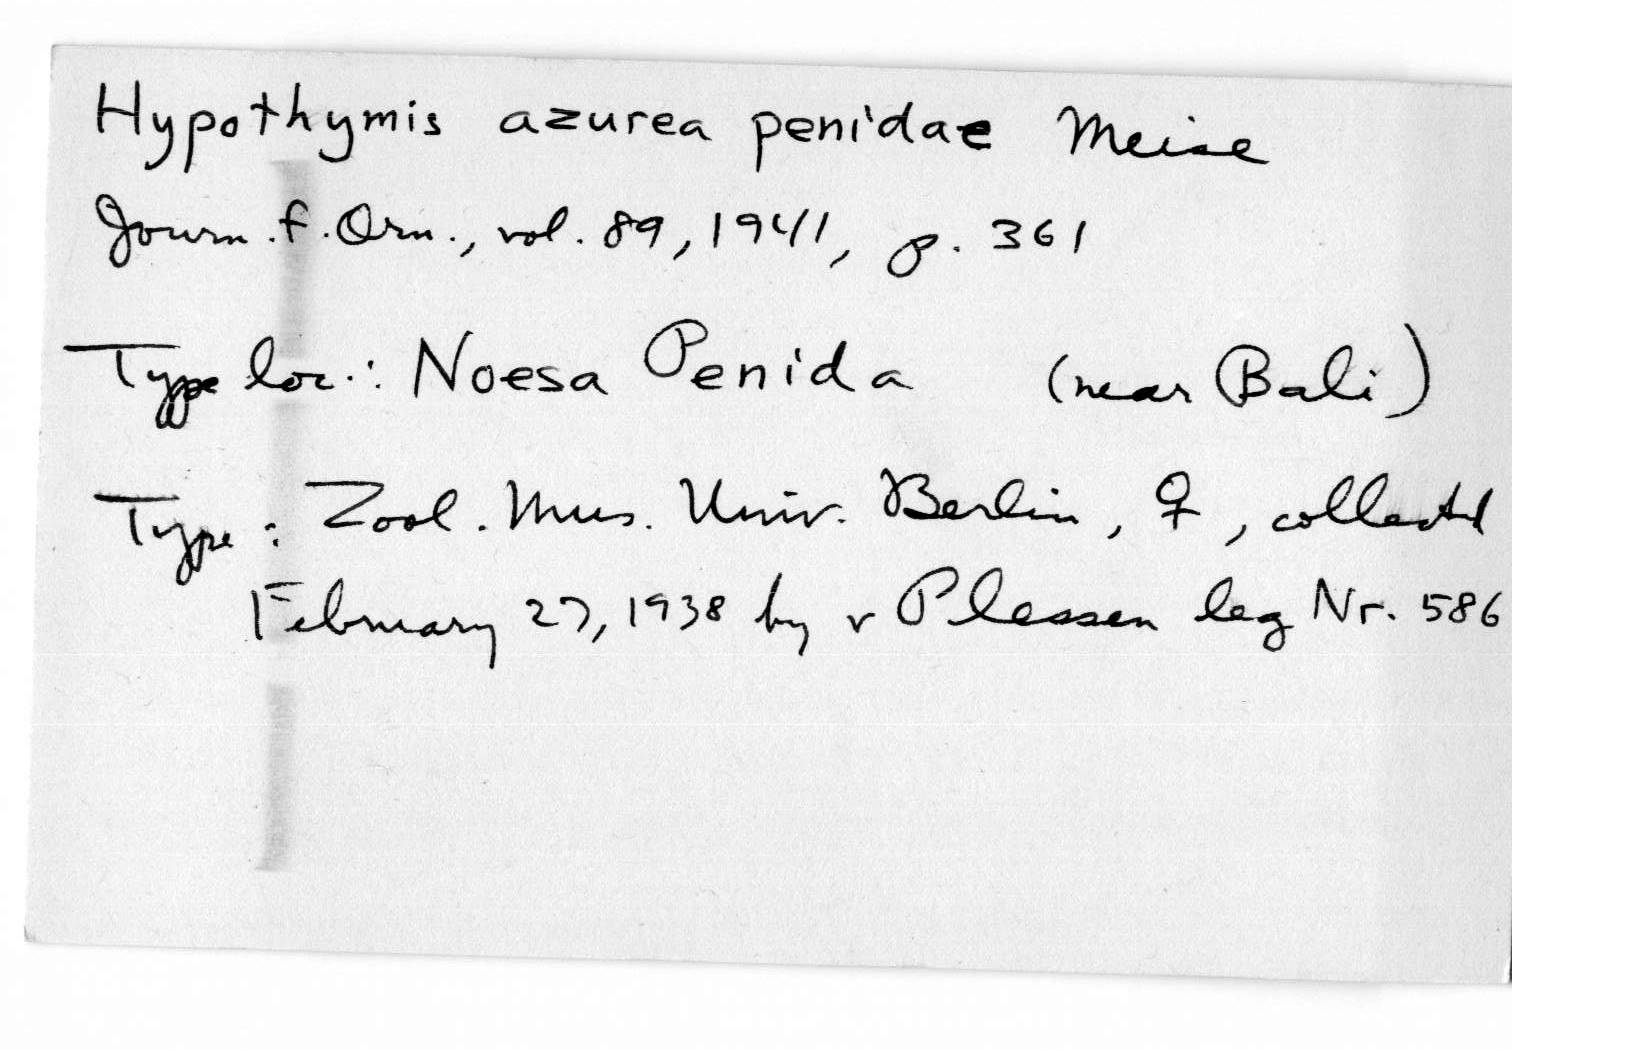 Hypothymis azurea penidae Meise
Journ. f. Orn., vol. 89, 1941, p. 361
Type loc.: Noesa Penida (near Bali)
Type: Zool. Mus. Univ. Berlin, ♀, collected
February 27, 1938 by v Plessen leg Nr. 586